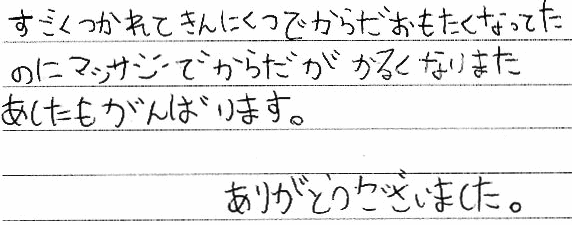 すごくつかれてきんにくつでからだおもたくなってた
のにマッサジーでからだが かるくなりまた
あしたもがんばります。
ありがとうございました。